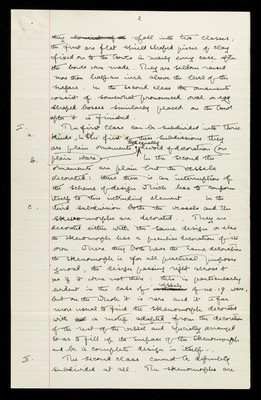 2
they consist of fall into two classes,
the first are flat shield shaped pieces of clay
affixed on to the bowls in nearly every case after
the bowls were made. They are seldom raised
more than half an inch above the level of the
surface. In the second class the ornaments
consist of somewhat pronounced oval or egg
shaped bosses similarly placed on the bowl
after it is finished.
I. The first class can be subdivided into three
a. kinds, In the first of these subdivisions they
are plain ornaments devoid of decoration (on
b. plain ware). In the second the
ornaments are plain but the vessels
decorated: thus there is an interruption of
the scheme of design which has to conform
itself to this intruding element. In the
c. third subdivision both the vessels and the
skeuomorphs are decorated. They are
decorated either with the same design or else
the skeuomorph has a peculiar decoration of its
own. Where they both have the same decoration
the skeuomorph is for all practical purposes
ignored, the design passing right across it
as if it were not there. this is particularly
evident in the case of vessels of fig. 19 ware,
but on the whole it is rare and it is far
more usual to find the skeuomorph decorated
with a motif adapted from the decoration
of the rest of the vessel and specially arranged
so as to fill up the surface of the skeuomorph
and be a complete design in itself.
II. The second class cannot be definitely
subdivided at all. The skeuomorphs are